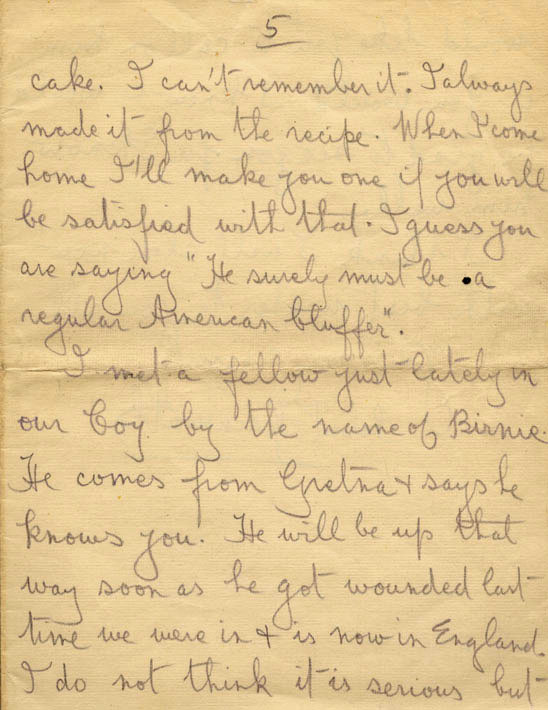 5
cake. I can't remember it. I always
made it from the recipe. When I come
home I'll make you one if you will
be satisfied with that. I guess you
are saying "He surely must be a
regular American bluffer".
I met a fellow just lately in
our Coy by the name of Birnie.
He comes from Gretna & says he
knows you. He will be up that
way soon as he got wounded last
time we were in & is now in England.
I do not think it is serious but